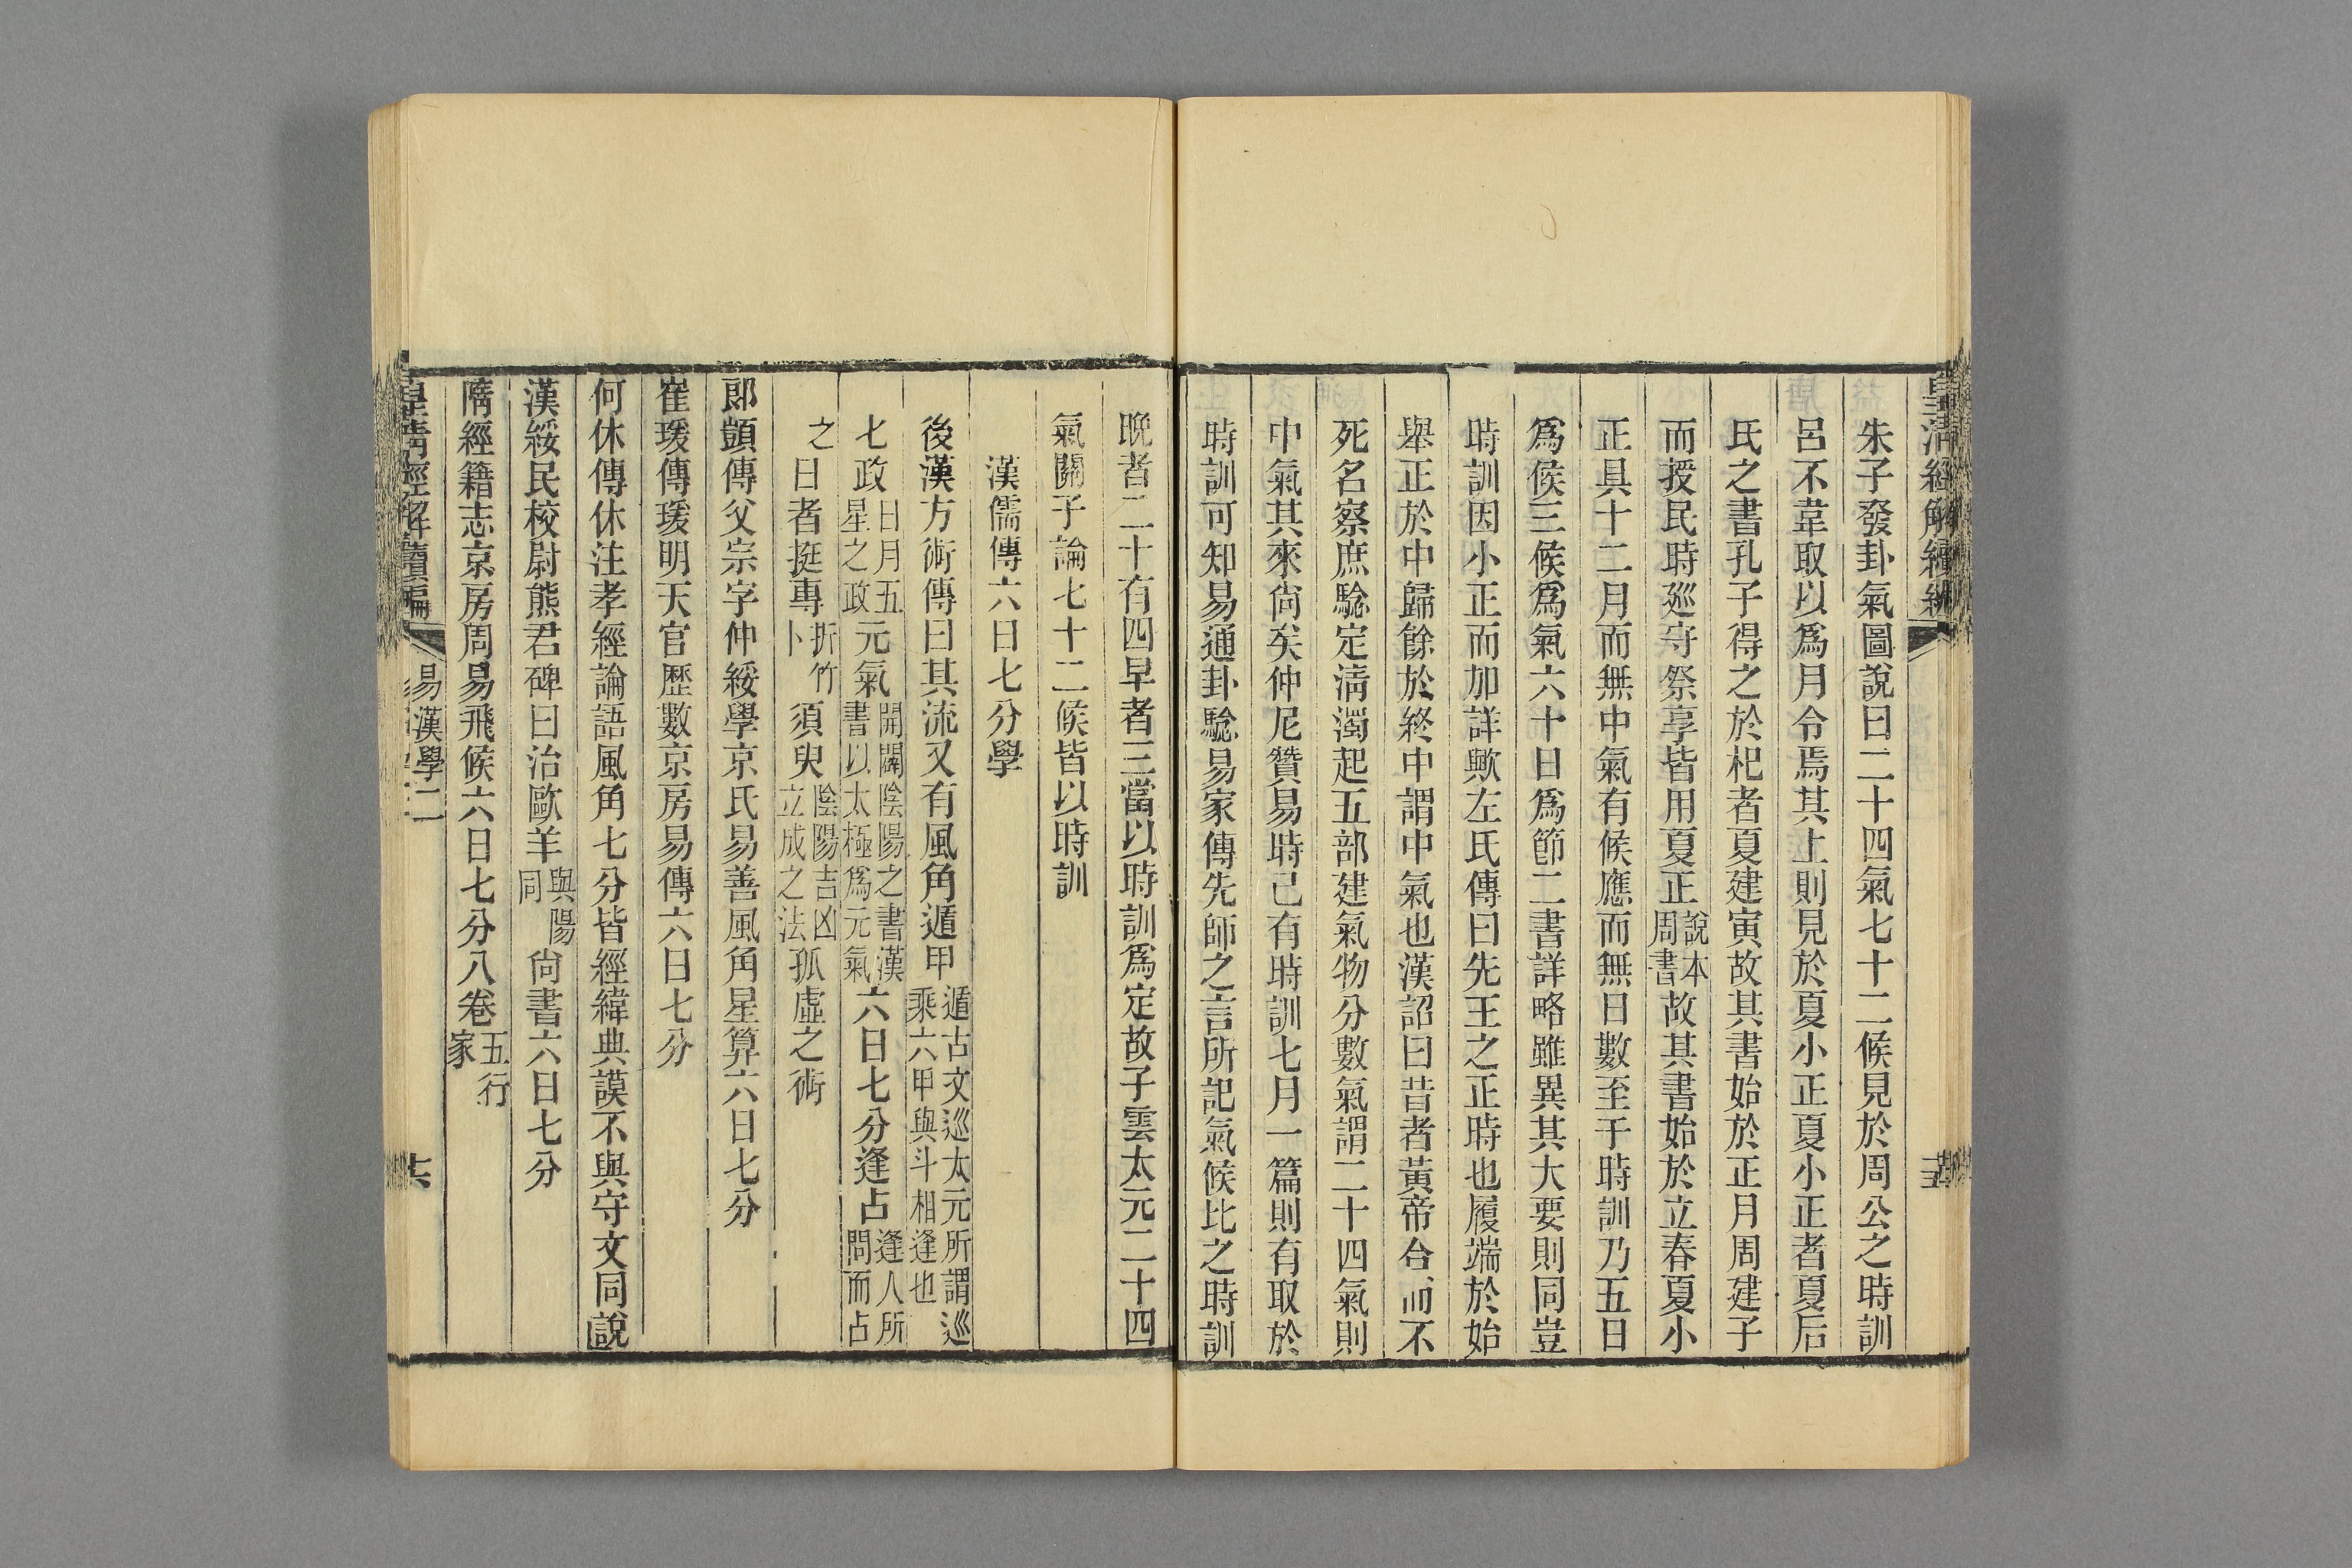 皇清經解續編
朱子發卦氣圖說曰二十四氣七十二候見於周公之時訓
呂不韋取以爲月令焉其上則見於夏小正夏小正者夏后
氏之書孔子得之於杞者夏建寅故其書始於正月周建子
而授民時廵守祭享皆用夏正說本周書故其書始於立春夏小
正具十二月而無中氣有候應而無日數至于時訓乃五日
爲候三候爲氣六十日爲節二書詳略雖異其大要則同豈
時訓因小正而加詳歟左氏傳曰先王之正時也履端於始
舉正於中歸餘於終中謂中氣也漢詔曰昔者黃帝合而不
死名察庶騐定淸濁起五部建氣物分數氣謂二十四氣則
中氣其來尙矣仲尼贊易時已有時訓七月一篇則有取於
時訓可知易通卦騐易家傳先師之言所記氣候比之時訓
晚者二十有四早者三當以時訓爲定故子雲太元二十四
氣關子論七十二候皆以時訓
漢儒傳六日七分學
後漢方術傳曰其流又有風角遁甲遁古文巡太元所謂巡乘六甲與斗相逢也
七政日月五星之政元氣開闢陰陽之書漢書以太極爲元氣六日七分逢占逢人所問而占
之日者挺專折竹卜須臾陰陽吉凶立成之法孤虛之術
郎顗傳父宗字仲綏學京氏易善風角星算六日七分
崔瑗傳瑗明天官歷數京房易傳六日七分
何休傳休注孝經論語風角七分皆經緯典謨不與守文同說
漢綏民校尉熊君碑曰治歐羊與陽同尙書六日七分
隋經籍志京房周易飛候六日七分八卷五行家
皇清經解續編
易漢學二
十六